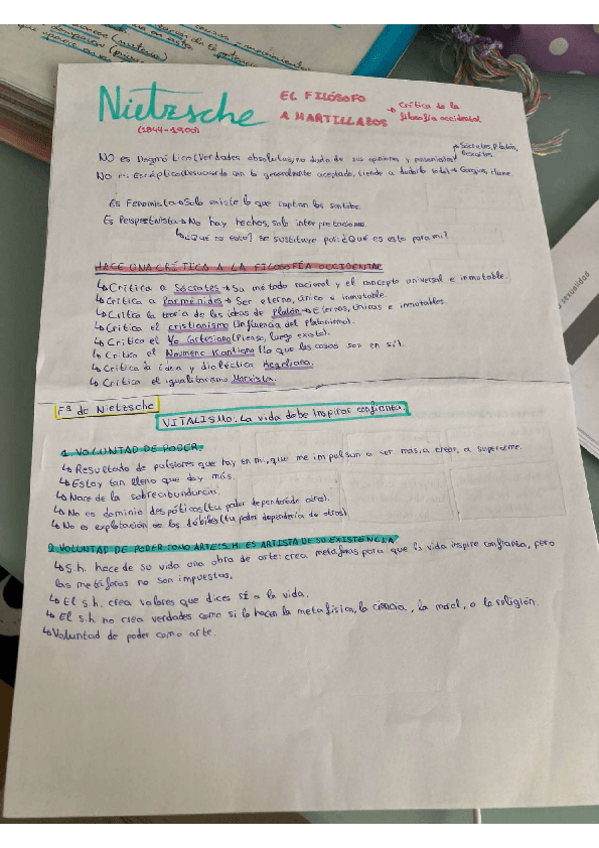 Nietzsche
(1844-1900)
EL FILÓSOFO
A MARTILLAZOS
→ Crítica de la
filosofía occidental
Sócrates, Platón,
Descartes.
NO es Dogmático (Verdades absolutas, no duda de sus opiniones y
No es Escéptico (Desacuerdo con lo generalmente aceptado, tiende a dudarlo todo) → Gorgias, Hume
Es Fenomista → Solo existe lo que captan los sentidos
Es Perspectivista → No hay hechos, solo interpretaciones.
↳ ¿Qué es esto? se sustituye por: ¿Qué es esto para mí?
HACE UNA CRÍTICA A LA FILOSOFÍA OCCIDENTAL
↳ Crítica a Sócrates → Su método racional y el concepto universal e inmutable.
↳ Crítica a Parménides → Ser eterno, único e inmutable.
↳ Crítica la teoría de las ideas de Platón → Eternas, Únicas e inmutables.
↳ Crítica el cristianismo (Influencia del Platonismo).
↳ Crítica el Yo Cartesiano (Pienso, luego existo).
↳ Crítica el Noumeno Kantiano (lo que las cosas son en sí).
↳ Crítica la idea y dialéctica Hegeliana.
↳ Crítica el igualitarismo Marxista.
Fª de Nietzsche
VITALISMO: La vida debe inspirar confianza.
1. VOLUNTAD DE PODER.
↳ Resultado de pulsiones que hay en mí, que me impulsan a ser más, a crear, a superarme.
↳ Estoy tan lleno que doy más.
↳ Nace de la sobreabundancia.
↳ No es dominio despótico (tu poder dependería de otros).
↳ No es explotación de los débiles (tu poder dependería de otros).
2. VOLUNTAD DE PODER COMO ARTE: S.H. ES ARTISTA DE SU EXISTENCIA
↳ S.h. hace de su vida una obra de arte: crea metáforas para que la vida inspire confianza, pero
las metáforas no son impuestas.
↳ El s.h. crea valores que dicen SÍ a la vida.
↳ El s.h. no crea verdades como sí lo hacen la metafísica, la ciencia, la moral, o la religión.
↳ Voluntad de poder como arte.
sexualidad